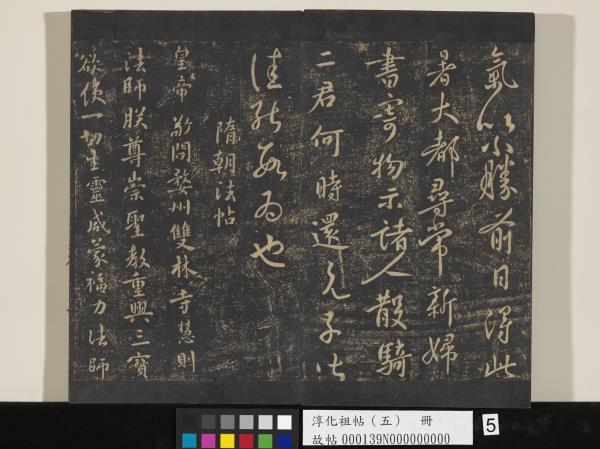 氣以小勝前日得此
暑大都尋常新婦
書寄物示諸人散騎
二君何時還兄子以
佳能數為也
隋朝法帖
皇帝敬問婺州雙林寺慧則
法師朕尊崇聖教重興三寶
欲使一切生靈咸蒙福力法師
淳化祖帖（五） 冊
故帖000139N000000000
5